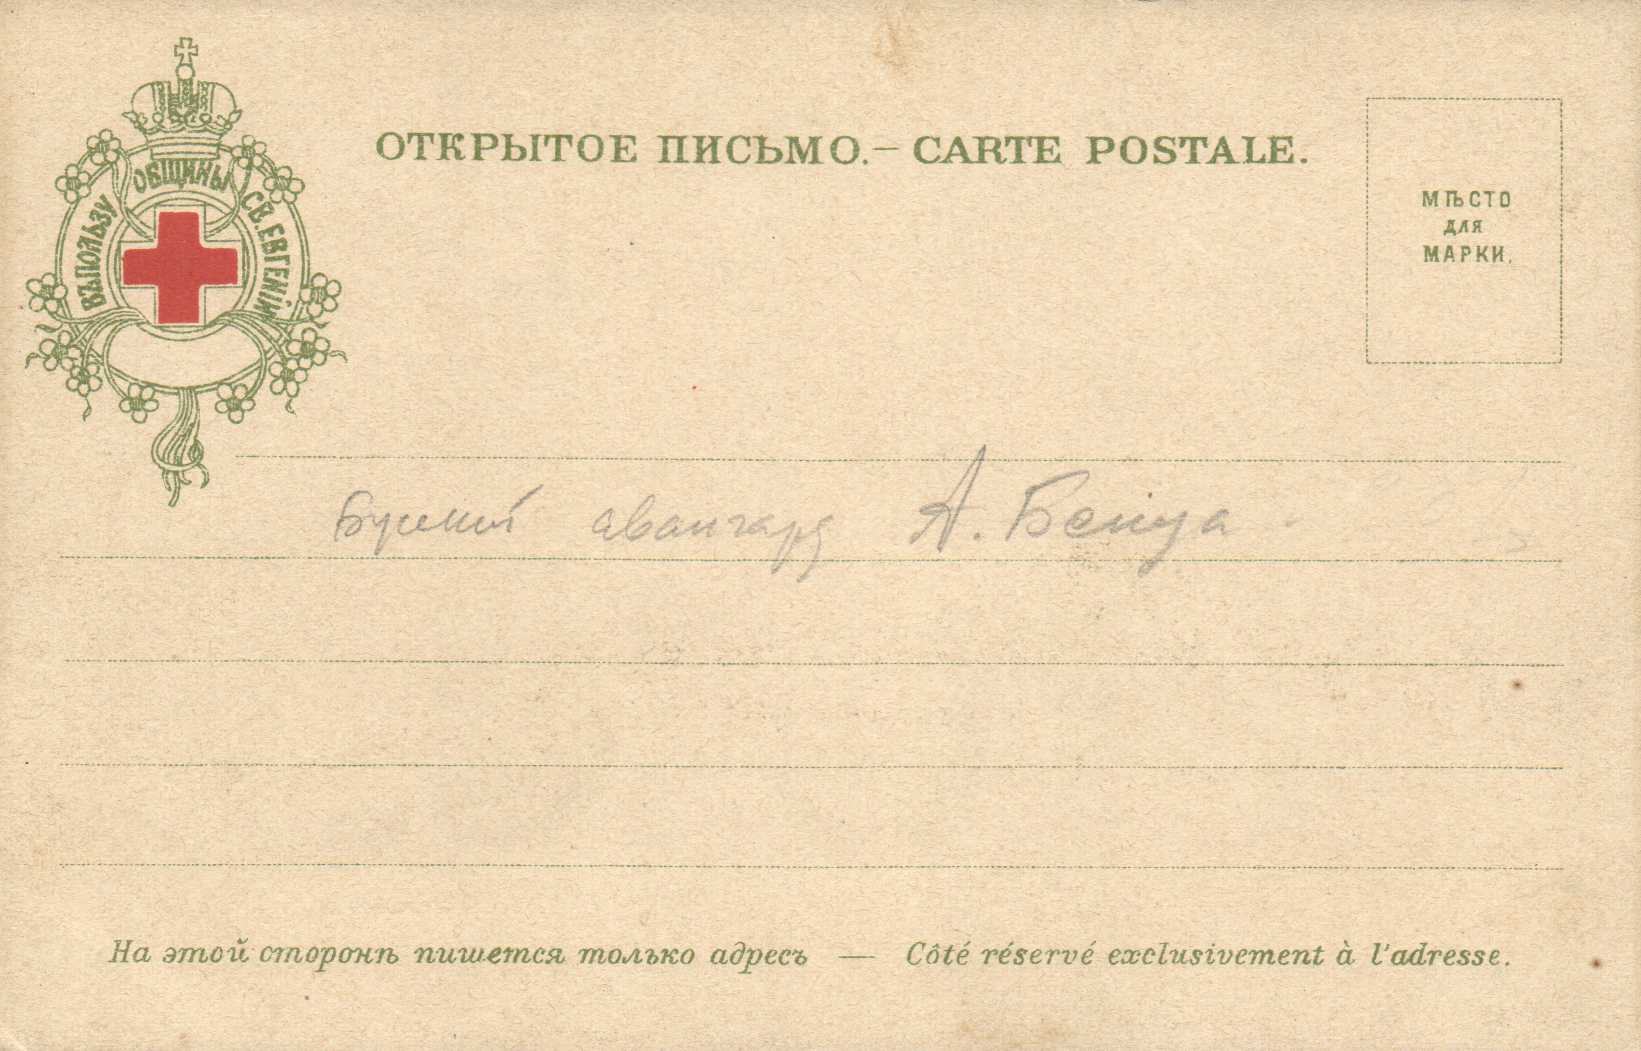 ВЪ ПОЛЬЗУ ОБЩИНЫ СВ. ЕВГЕНІИ
ОТКРЫТОЕ ПИСЬМО. – CARTE POSTALE.
МѢСТО
ДЛЯ
МАРКИ.
авангард А. Бенуа
На этой сторонѣ пишется только адресъ — Côté réservé exclusivement à l'adresse.